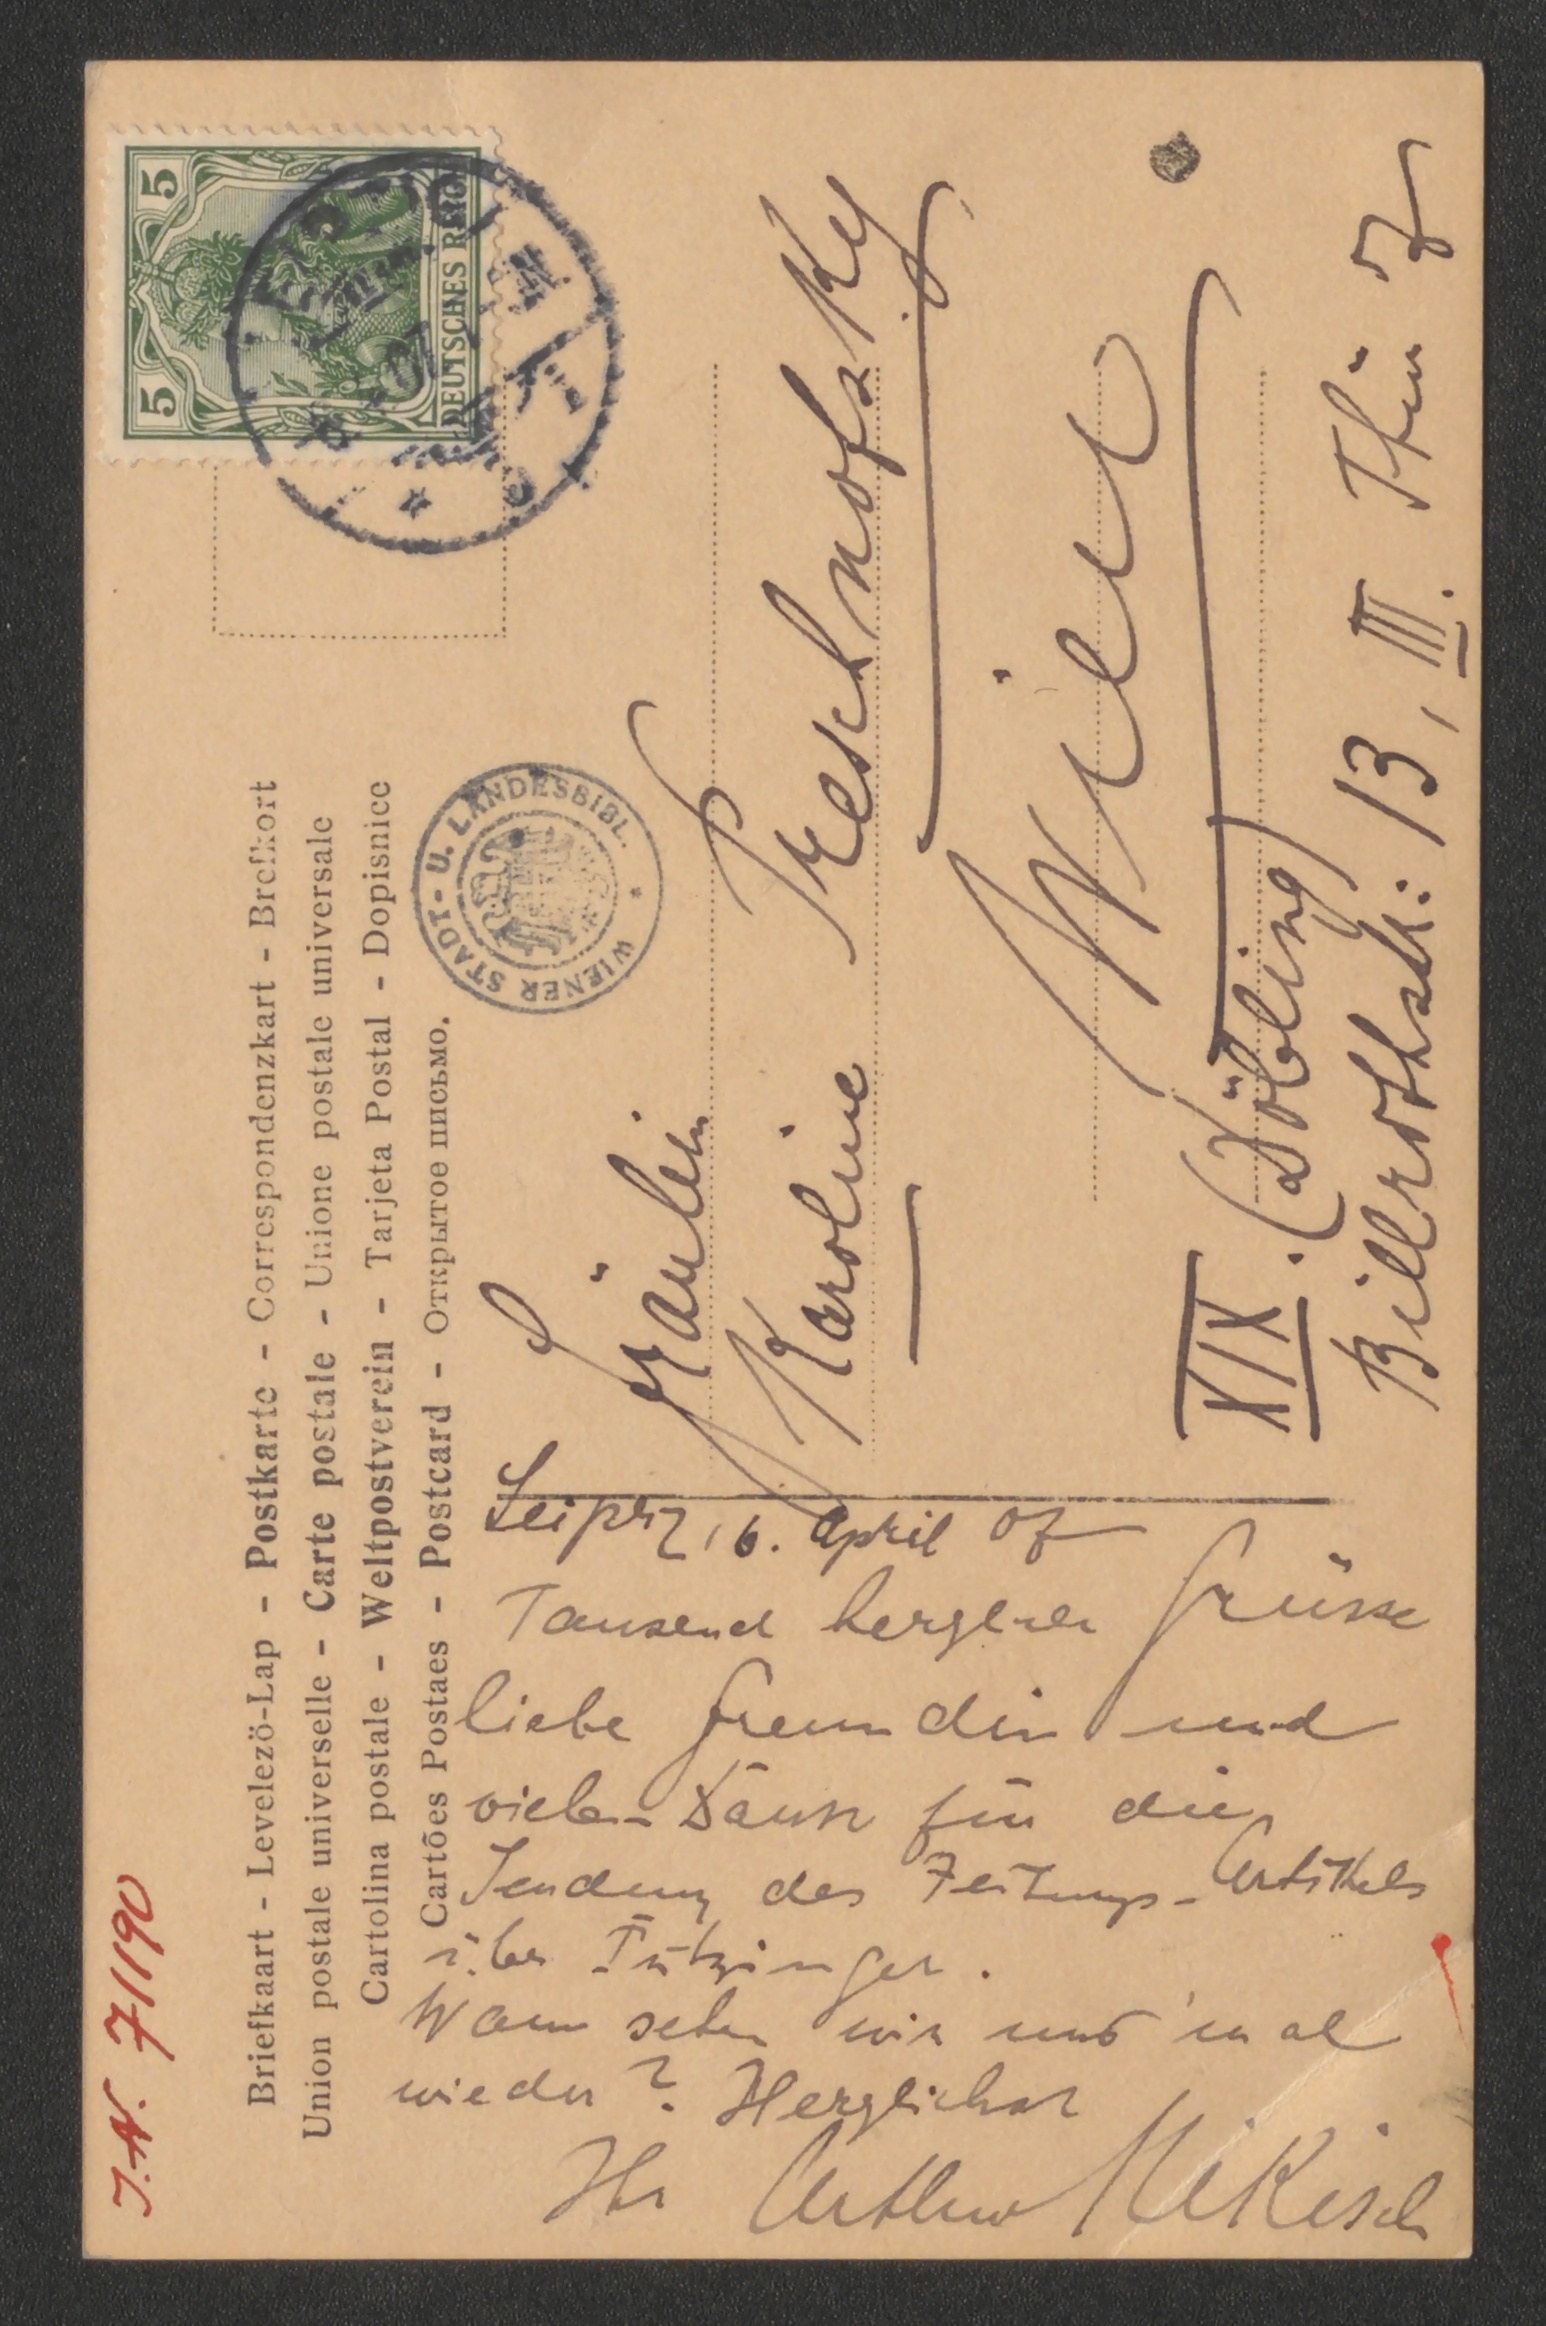 J.N. 7/190
Briefkaart - Levelezö-Lap - Postkarte - Correspondenzkart - Brefkort
Union postale universelle - Carte postale - Unione postale universale
Cartolina postale - Weltpostverein - Tarjeta Postal - Dopisnice
Cartões Postaes - Postcard - Открытое письмо.
5 5
DEUTSCHES REICH
WIENER STADT- U. LANDESBIBL.
Fräulein
Karoline
Wien
XIX. (Döbling)
Billrothstr: 13, III. Thür 7
Leipzig, 6. April 07
Tausend herzliche Grüsse
liebe Freundin und
vielen Dank für die
Sendung des Zeitungs-Artikels
über
Wann sehen wir uns 'mal
wieder? Herzlichst
Ihr Arthur Nikisch